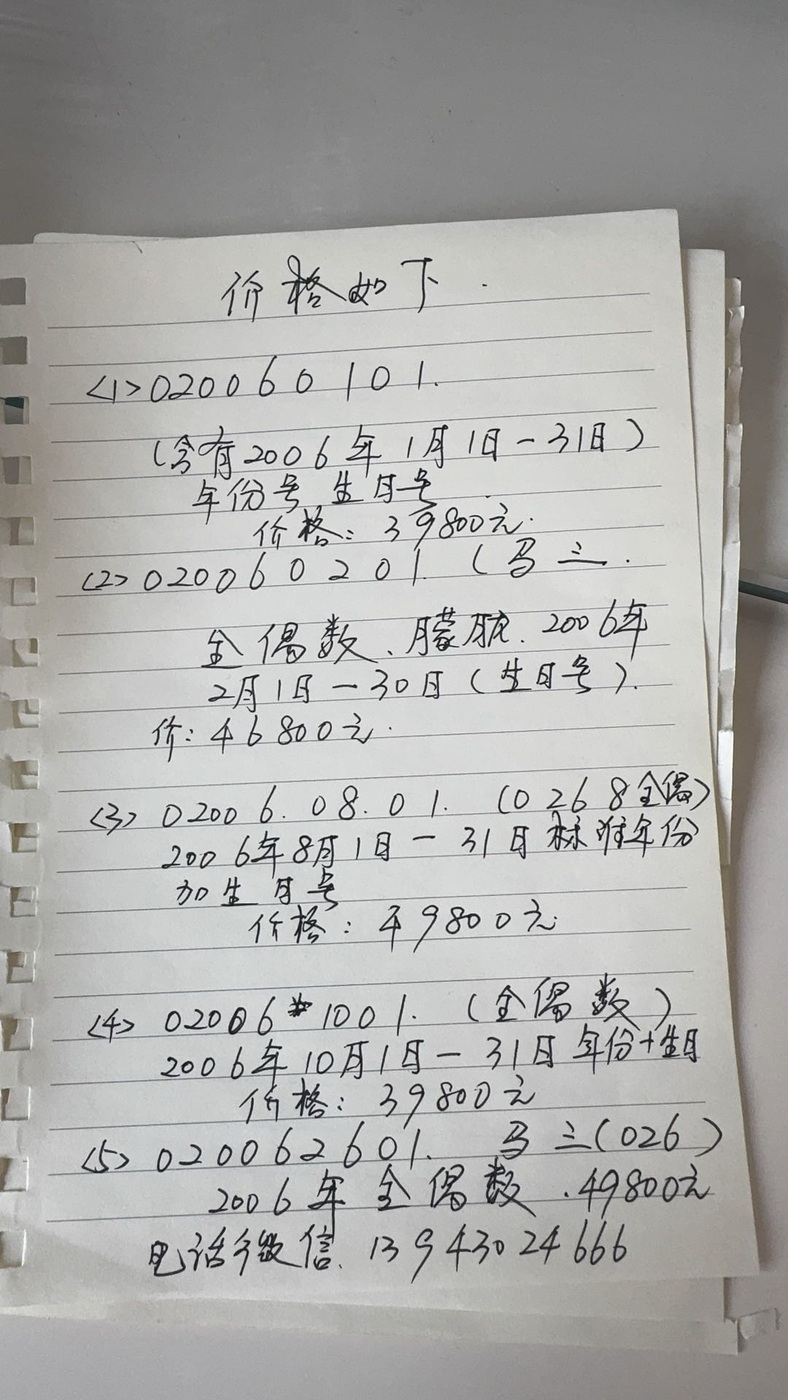 价格如下.
<1>020060101.
(含有2006年1月1日－31日)
年份号 生日号
价格: 39800元.
<2>020060201. (豹三.
全偶数、朦胧.2006年
2月1日－30日(生日号).
价: 46800元.
<3> 02006.08.01. (0268全偶)
2006年8月1日－31日标准年份
加生日号
价格: 49800元.
<4> 02006 1001. (全偶数)
2006年10月1日－31日年份+生日
价格: 39800元
<5> 020062601. 豹三(026)
2006年全偶数.49800元
电话微信.13943024666